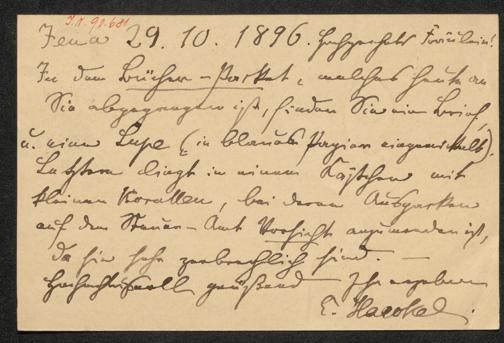 I.N. 90.681
Jena 29. 10. 1896. Hochgeehrtes Fräulein!
In dem Bücher-Packet, welches heute an
Sie abgegangen ist, finden Sie ein Brief,
u. eine Lupe (in blaues Papier eingewickelt).
Letztere liegt in einem Kästchen mit
kleinen Korallen, bei deren Auspacken
auf dem Steuer-Amt Vorsicht anzuwenden ist,
da sie sehr zerbrechlich sind. —
Hochachtungsvoll grüßend Ihr ergebener
E. Haeckel.